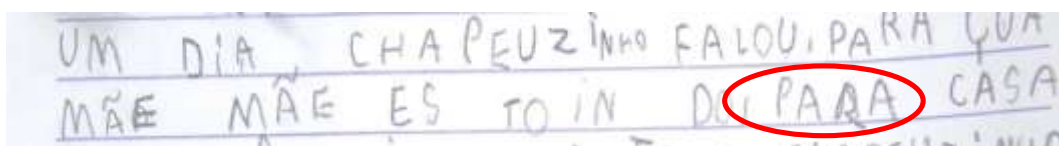 UM DIA, CHAPEUZINHO FALOU, PARA ÇUA
MÃE MÃE ES TO IN DO, PARA CASA